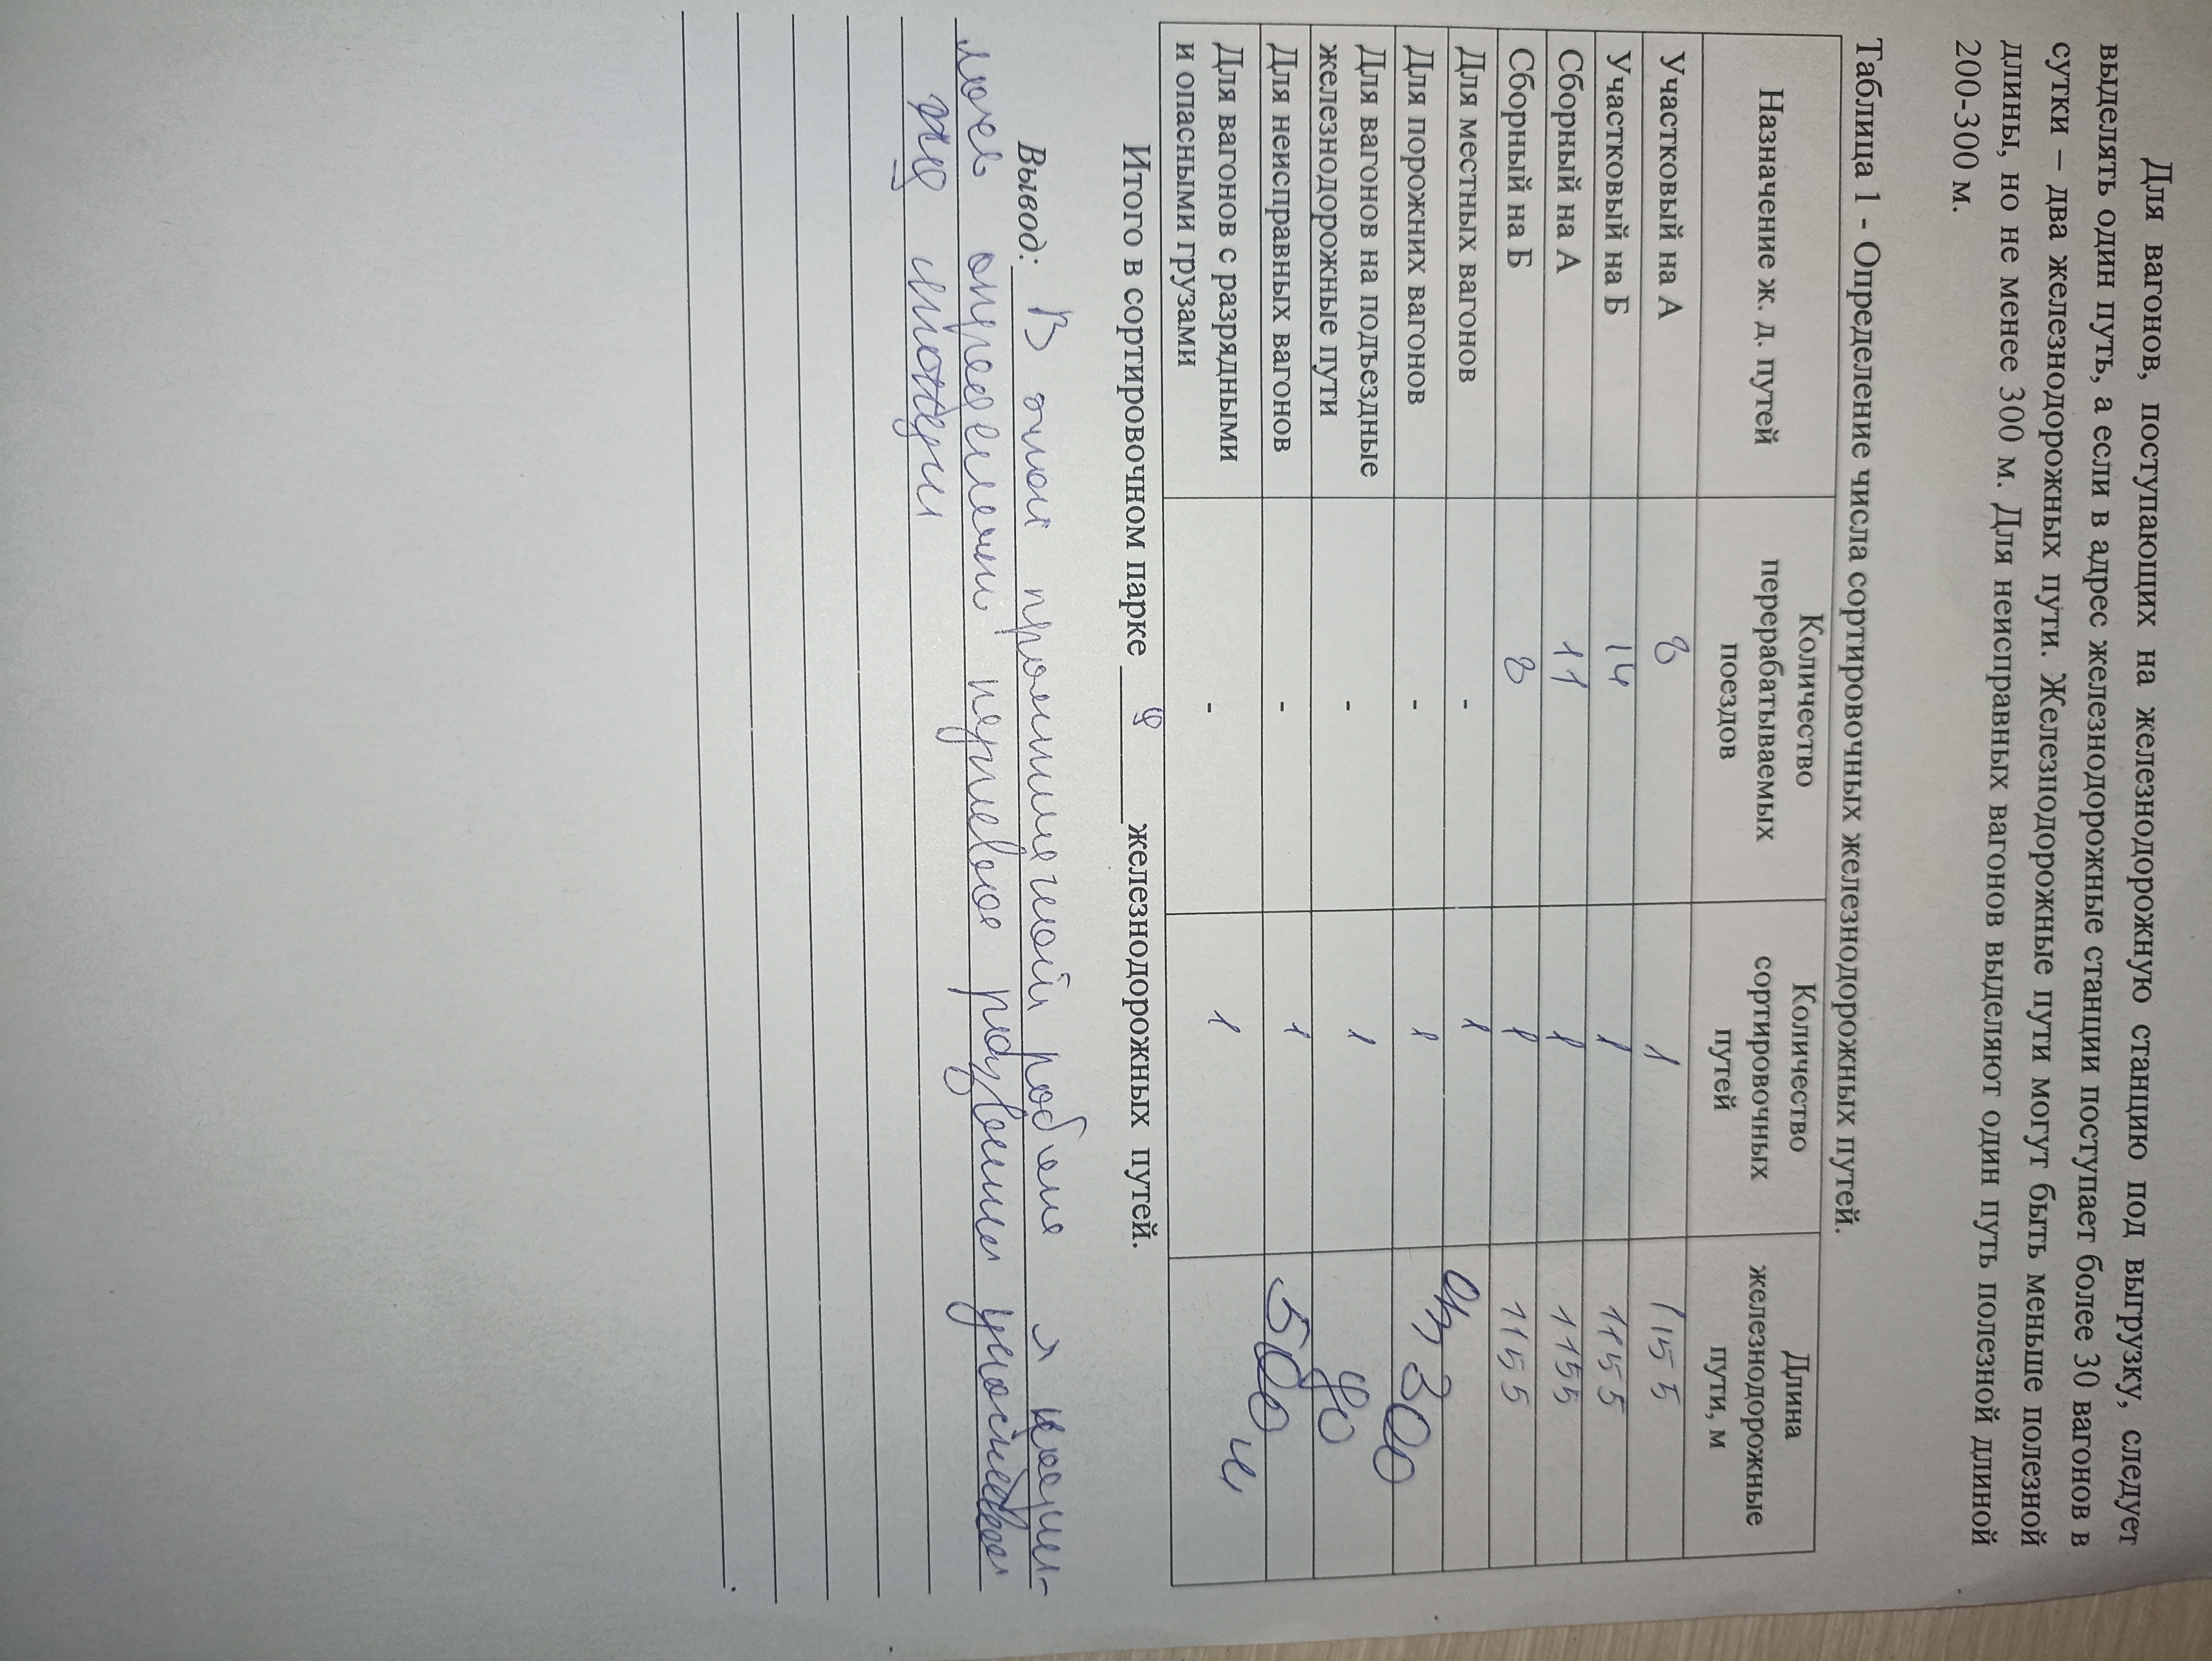 Для вагонов, поступающих на железнодорожную станцию под выгрузку, следует
выделять один путь, а если в адрес железнодорожные станции поступает более 30 вагонов в
сутки – два железнодорожных пути. Железнодорожные пути могут быть меньше полезной
длины, но не менее 300 м. Для неисправных вагонов выделяют один путь полезной длиной
200-300 м.
Таблица 1 - Определение числа сортировочных железнодорожных путей.
Назначение ж. д. путей Количество перерабатываемых поездов Количество сортировочных путей Длина железнодорожные пути, м
Участковый на А 8 1 1155
Участковый на Б 14 1 1155
Сборный на А 11 1 1155
Сборный на Б 8 1 1155
Для местных вагонов - 1
Для порожних вагонов - 1 300
Для вагонов на подъездные железнодорожные пути - 1
Для неисправных вагонов - 1 500
Для вагонов с разрядными и опасными грузами - 1
Итого в сортировочном парке 9 железнодорожных путей.
Вывод: В этой практической работе я научи-
лось определять путевое развитие участковой